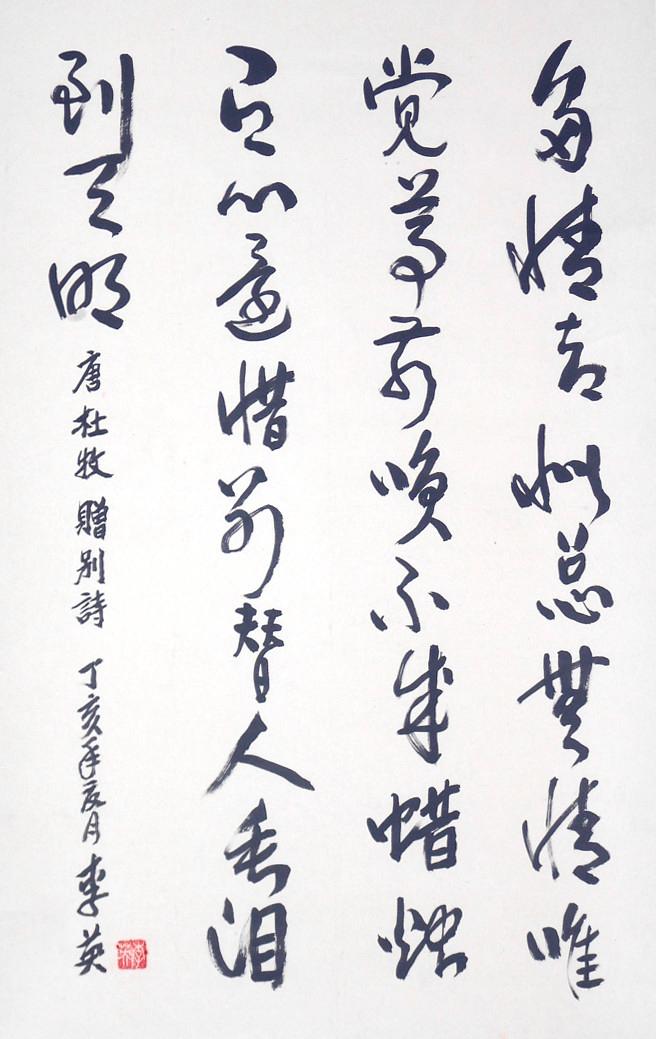 多情却似总無情唯
觉尊前唤不成蜡烛
有心還惜别替人垂泪
到天明 唐杜牧贈别詩 丁亥年辰月 李英